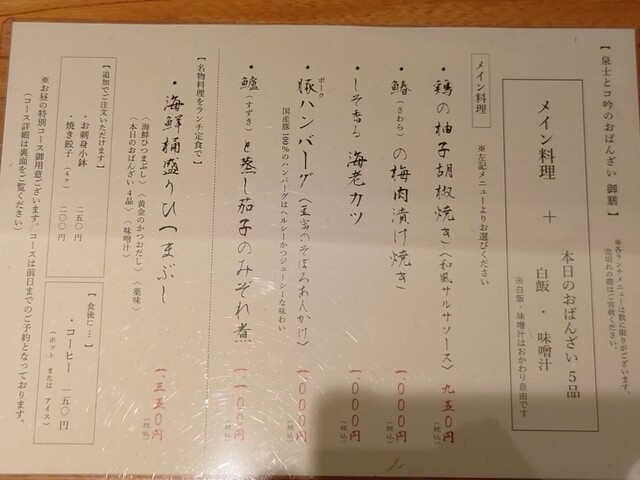 【泉士とコ吟のおばんざい 御膳】
※各ランチメニューは数に限りがございます。
売切れの際はご容赦ください。
メイン料理 ＋
本日のおばんざい５品
白飯 ・ 味噌汁
※白飯・味噌汁はおかわり自由です
メイン料理
※左記メニューよりお選びください
・鶏の柚子胡椒焼き〈和風サルサソース〉 九五〇円（税込）
・鰆（さわら）の梅肉漬け焼き 一、〇〇〇円（税込）
・しそ香る海老カツ 一、〇〇〇円（税込）
・豚（ポーク）ハンバーグ 一、〇〇〇円（税込）
国産豚100％のハンバーグはヘルシーかつジューシーな味わい
・鱸（すずき）と蒸し茄子のみぞれ煮 一、一〇〇円（税込）
【名物料理をランチ定食で】
・海鮮桶盛りひつまぶし 一、三五〇円（税込）
〈海鮮ひつまぶし〉〈黄金のかつおだし〉〈薬味〉
〈本日のおばんざい４品〉〈味噌汁〉
【追加でご注文いただけます】
・お刺身小鉢 二五〇円
・焼き餃子（４ヶ） 二〇〇円
【食後に…】
・コーヒー 一五〇円
（ホット または アイス）
※お昼の特別コース御用意ございます。コースは前日までのご予約となっております。
（コース詳細は裏面をご覧ください）